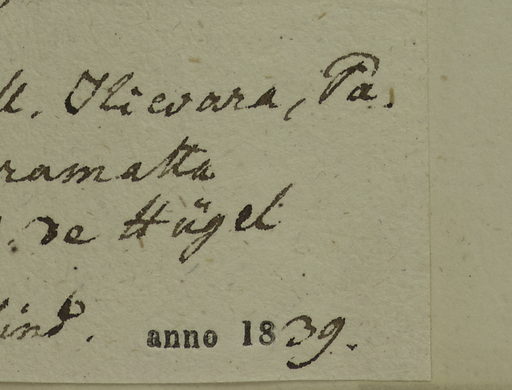 Illievara, Pa.
ramatta
de Hügel
anno 1839.